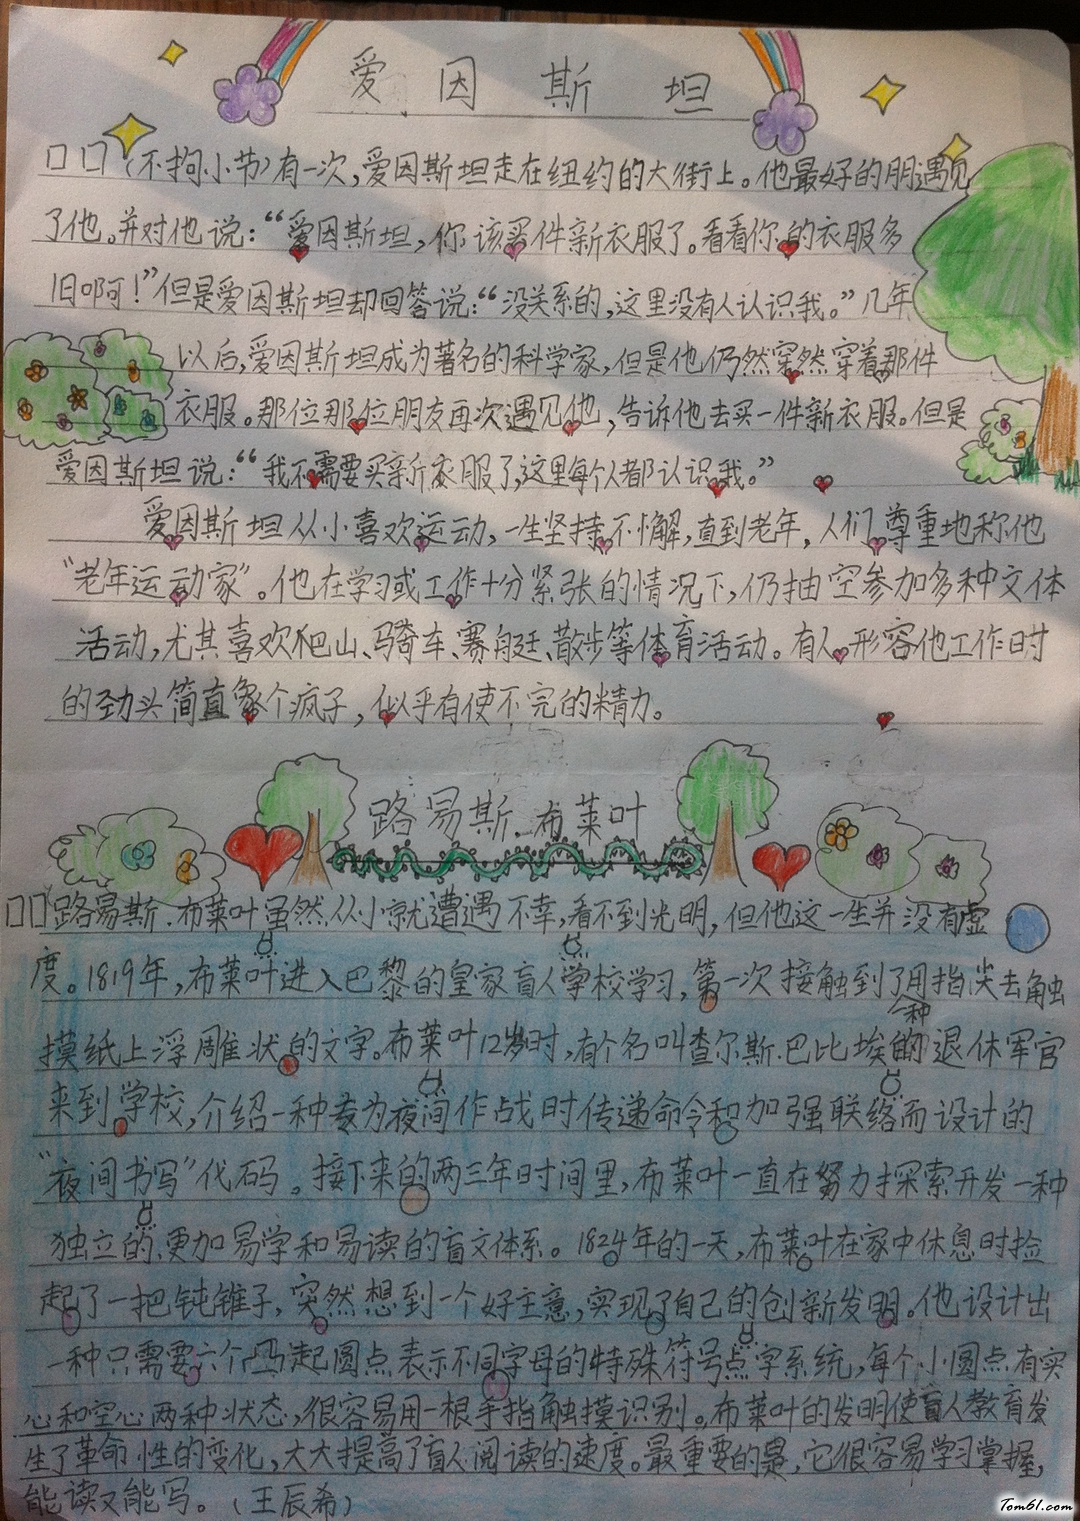 爱因斯坦
口口(不拘小节)有一次,爱因斯坦走在纽约的大街上。他最好的朋遇见
了他。并对他说:“爱因斯坦,你该买件新衣服了。看看你的衣服多
旧啊!”但是爱因斯坦却回答说:“没关系的,这里没有人认识我。”几年
以后,爱因斯坦成为著名的科学家,但是他仍然突然穿着那件
衣服。那位那位朋友再次遇见他,告诉他去买一件新衣服。但是
爱因斯坦说:“我不需要买新衣服了,这里每个人都认识我。”
爱因斯坦从小喜欢运动,一生坚持不懈,直到老年,人们尊重地称他
“老年运动家”。他在学习或工作十分紧张的情况下,仍抽空参加多种文体
活动,尤其喜欢爬山、骑车、赛艇、散步等体育活动。有人形容他工作时
的劲头简直象个疯子,似乎有使不完的精力。
路易斯.布莱叶
口口路易斯.布莱叶虽然从小就遭遇不幸,看不到光明,但他这一生并没有虚
度。1819年,布莱叶进入巴黎的皇家盲人学校学习,第一次接触到了一种用指尖去触
摸纸上浮雕状的文字。布莱叶12岁时,有个名叫查尔斯.巴比埃的退休军官
来到学校,介绍一种专为夜间作战时传递命令和加强联络而设计的
“夜间书写”代码。接下来的两三年时间里,布莱叶一直在努力探索开发一种
独立的、更加易学和易读的盲文体系。1824年的一天,布莱叶在家中休息时捡
起了一把钝锥子,突然想到一个好主意,实现了自己的创新发明。他设计出
一种只需要六个凸起圆点表示不同字母的特殊符号点字系统,每个小圆点有实
心和空心两种状态,很容易用一根手指触摸识别。布莱叶的发明使盲人教育发
生了革命性的变化,大大提高了盲人阅读的速度。最重要的是,它很容易学习掌握,
能读又能写。(王辰希)
Tom61.com